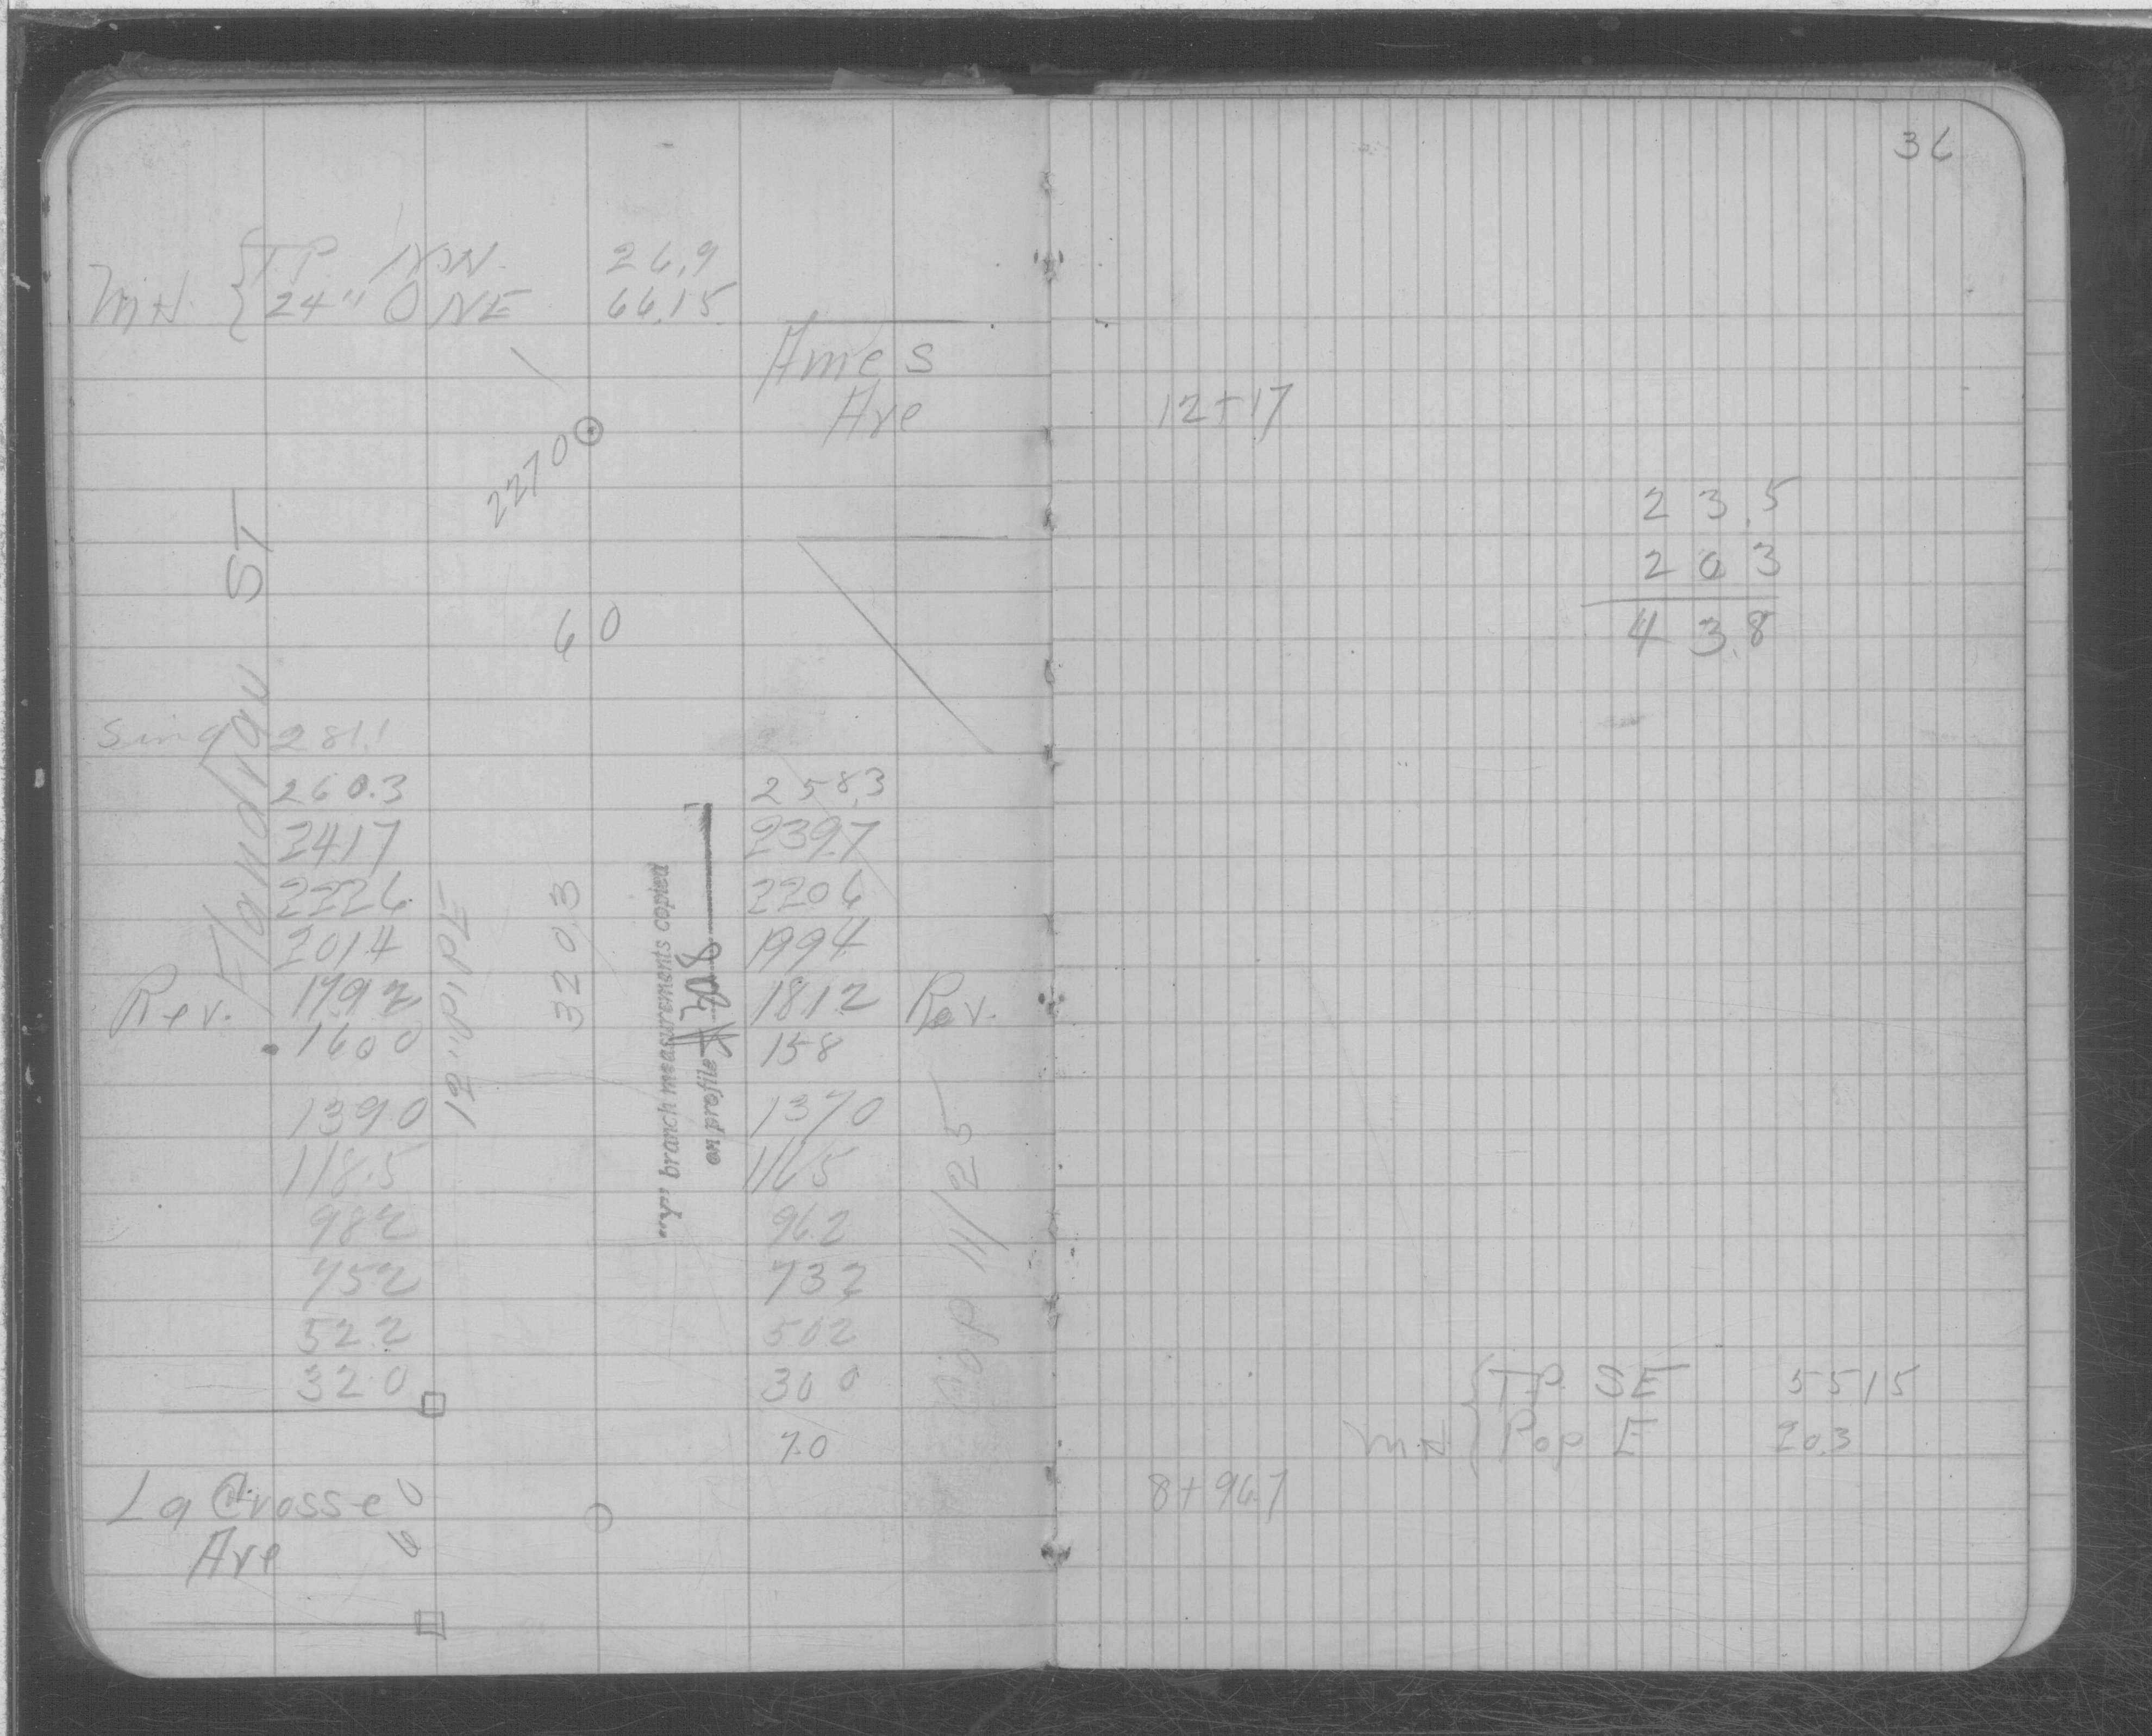 36
T.P. NW. 26.9
MH 24" O NE 66.15
Ames
Ave
2270
60
Flandrau ST
Sing 281.1
260.3 258.3
241.7 239.7
222.6 220.6
201.4 199.4
Rev. 179.2 181.2 Rev.
160.0 158
139.0 137.0
118.5 116.5
98.2 96.2
75.2 73.2
52.2 50.2
32.0 30.0
7.0
12" PIPE
320.3
"Y" branch measurements copied
on profile #308
11/25
La Crosse
Ave
60
12+17
23.5
20.3
43.8
T.P. SE 55.15
MH Pop E 20.3
8+96.7